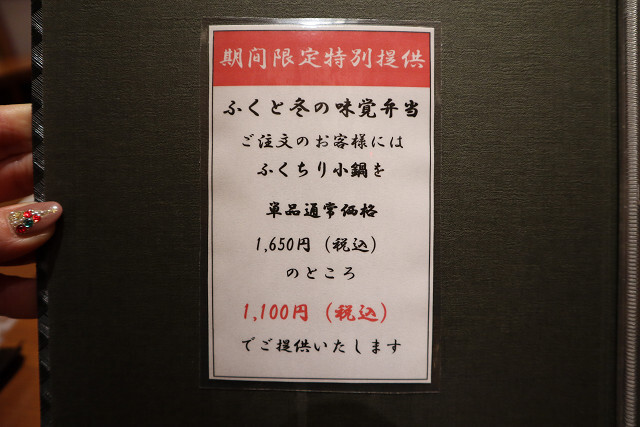 期间限定特别提供
ふくと冬の味覚弁当
ご注文のお客様には
ふくちり小鍋を
単品通常価格
1,650円（税込）
のところ
1,100円（税込）
でご提供いたします